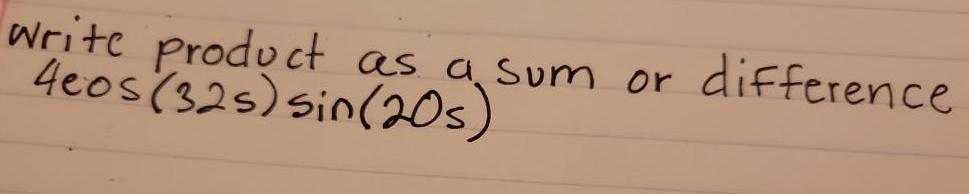 Write product as a sum or difference
4cos(32s) sin(20s)